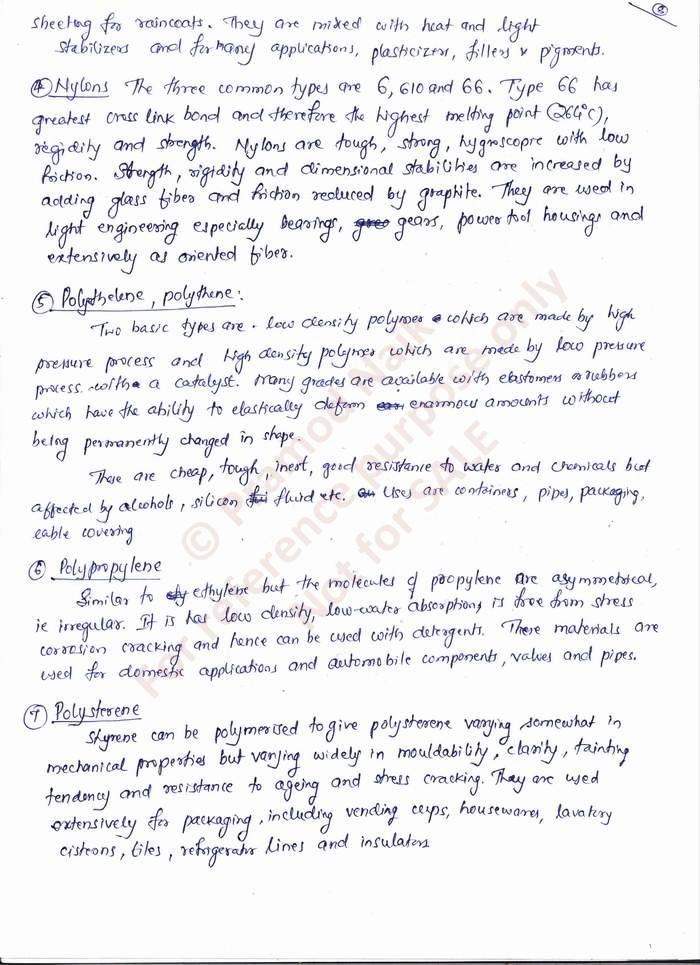 ③
sheeting for raincoats. They are mixed with heat and light
stabilizers and for many applications, plasticizers, fillers & pigments.
④ Nylons The three common types are 6, 610 and 66. Type 66 has
greatest cross link bond and therefore the highest melting point (264°C),
regidity and strength. Nylons are tough, strong, hygroscopic with low
friction. Strength, rigidity and dimensional stabilities are increased by
adding glass fiber and friction reduced by graphite. They are used in
light engineering especially bearings, gears, power tool housings and
extensively as oriented fiber.
⑤ Polythelene, polythene:
Two basic types are. low density polymer which are made by high
pressure process and high density polymer which are made by low pressure
process with a catalyst. Many grades are available with elastomers or rubbers
which have the ability to elastically deform enarmous amounts without
being permanently changed in shape.
These are cheap, tough, inert, good resistance to water and chemicals but
affected by alcohols, silicon fluid etc. Uses are containers, pipes, packaging,
cable covering
⑥ Polypropylene
Similar to ethylene but the molecules of propylene are asymmetrical,
ie irregular. It is has low density, low-water absorption, is free from stress
corrosion cracking and hence can be used with detergents. These materials are
used for domestic applications and automobile components, values and pipes.
⑦ Polysterene
Styrene can be polymerised to give polysterene varying somewhat in
mechanical properties but varying widely in mouldability, clarity, tainting
tendency and resistance to ageing and stress cracking. They are used
extensively for packaging, including vending cups, housewares, lavatory
cisteons, tiles, refrigerator lines and insulators
© Pramod Naik
For reference purpose only
Not for SALE